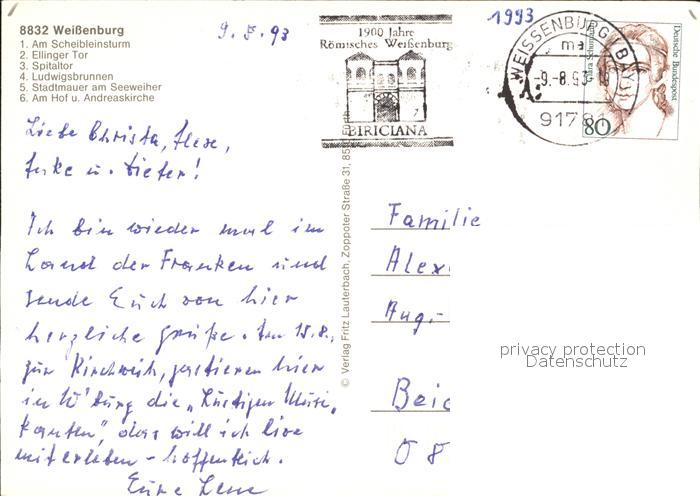 8832 Weißenburg
1. Am Scheibleinsturm
2. Ellinger Tor
3. Spitaltor
4. Ludwigsbrunnen
5. Stadtmauer am Seeweiher
6. Am Hof u. Andreaskirche
9. 8. 93
1900 Jahre
Römisches Weißenburg
BIRICIANA
1993
WEISSENBURG, BAY
ma
-9.-8.93
91781
Deutsche Bundespost
80
Liebe Christa,
u. Dieter!
Ich bin wieder mal im
Land der Franken und
sende Euch von hier
herzliche Grüße. Am 15.8.,
zur Kirchweih, gastieren hier
in W'burg die „Lustigen Musi-
kanten", das will ich live
miterleben - hoffentlich.
Eure Lene
© Verlag Fritz Lauterbach, Zoppoter Straße 31, 85
Familie
Alex
Aug.-
Beic
08
privacy protection
Datenschutz